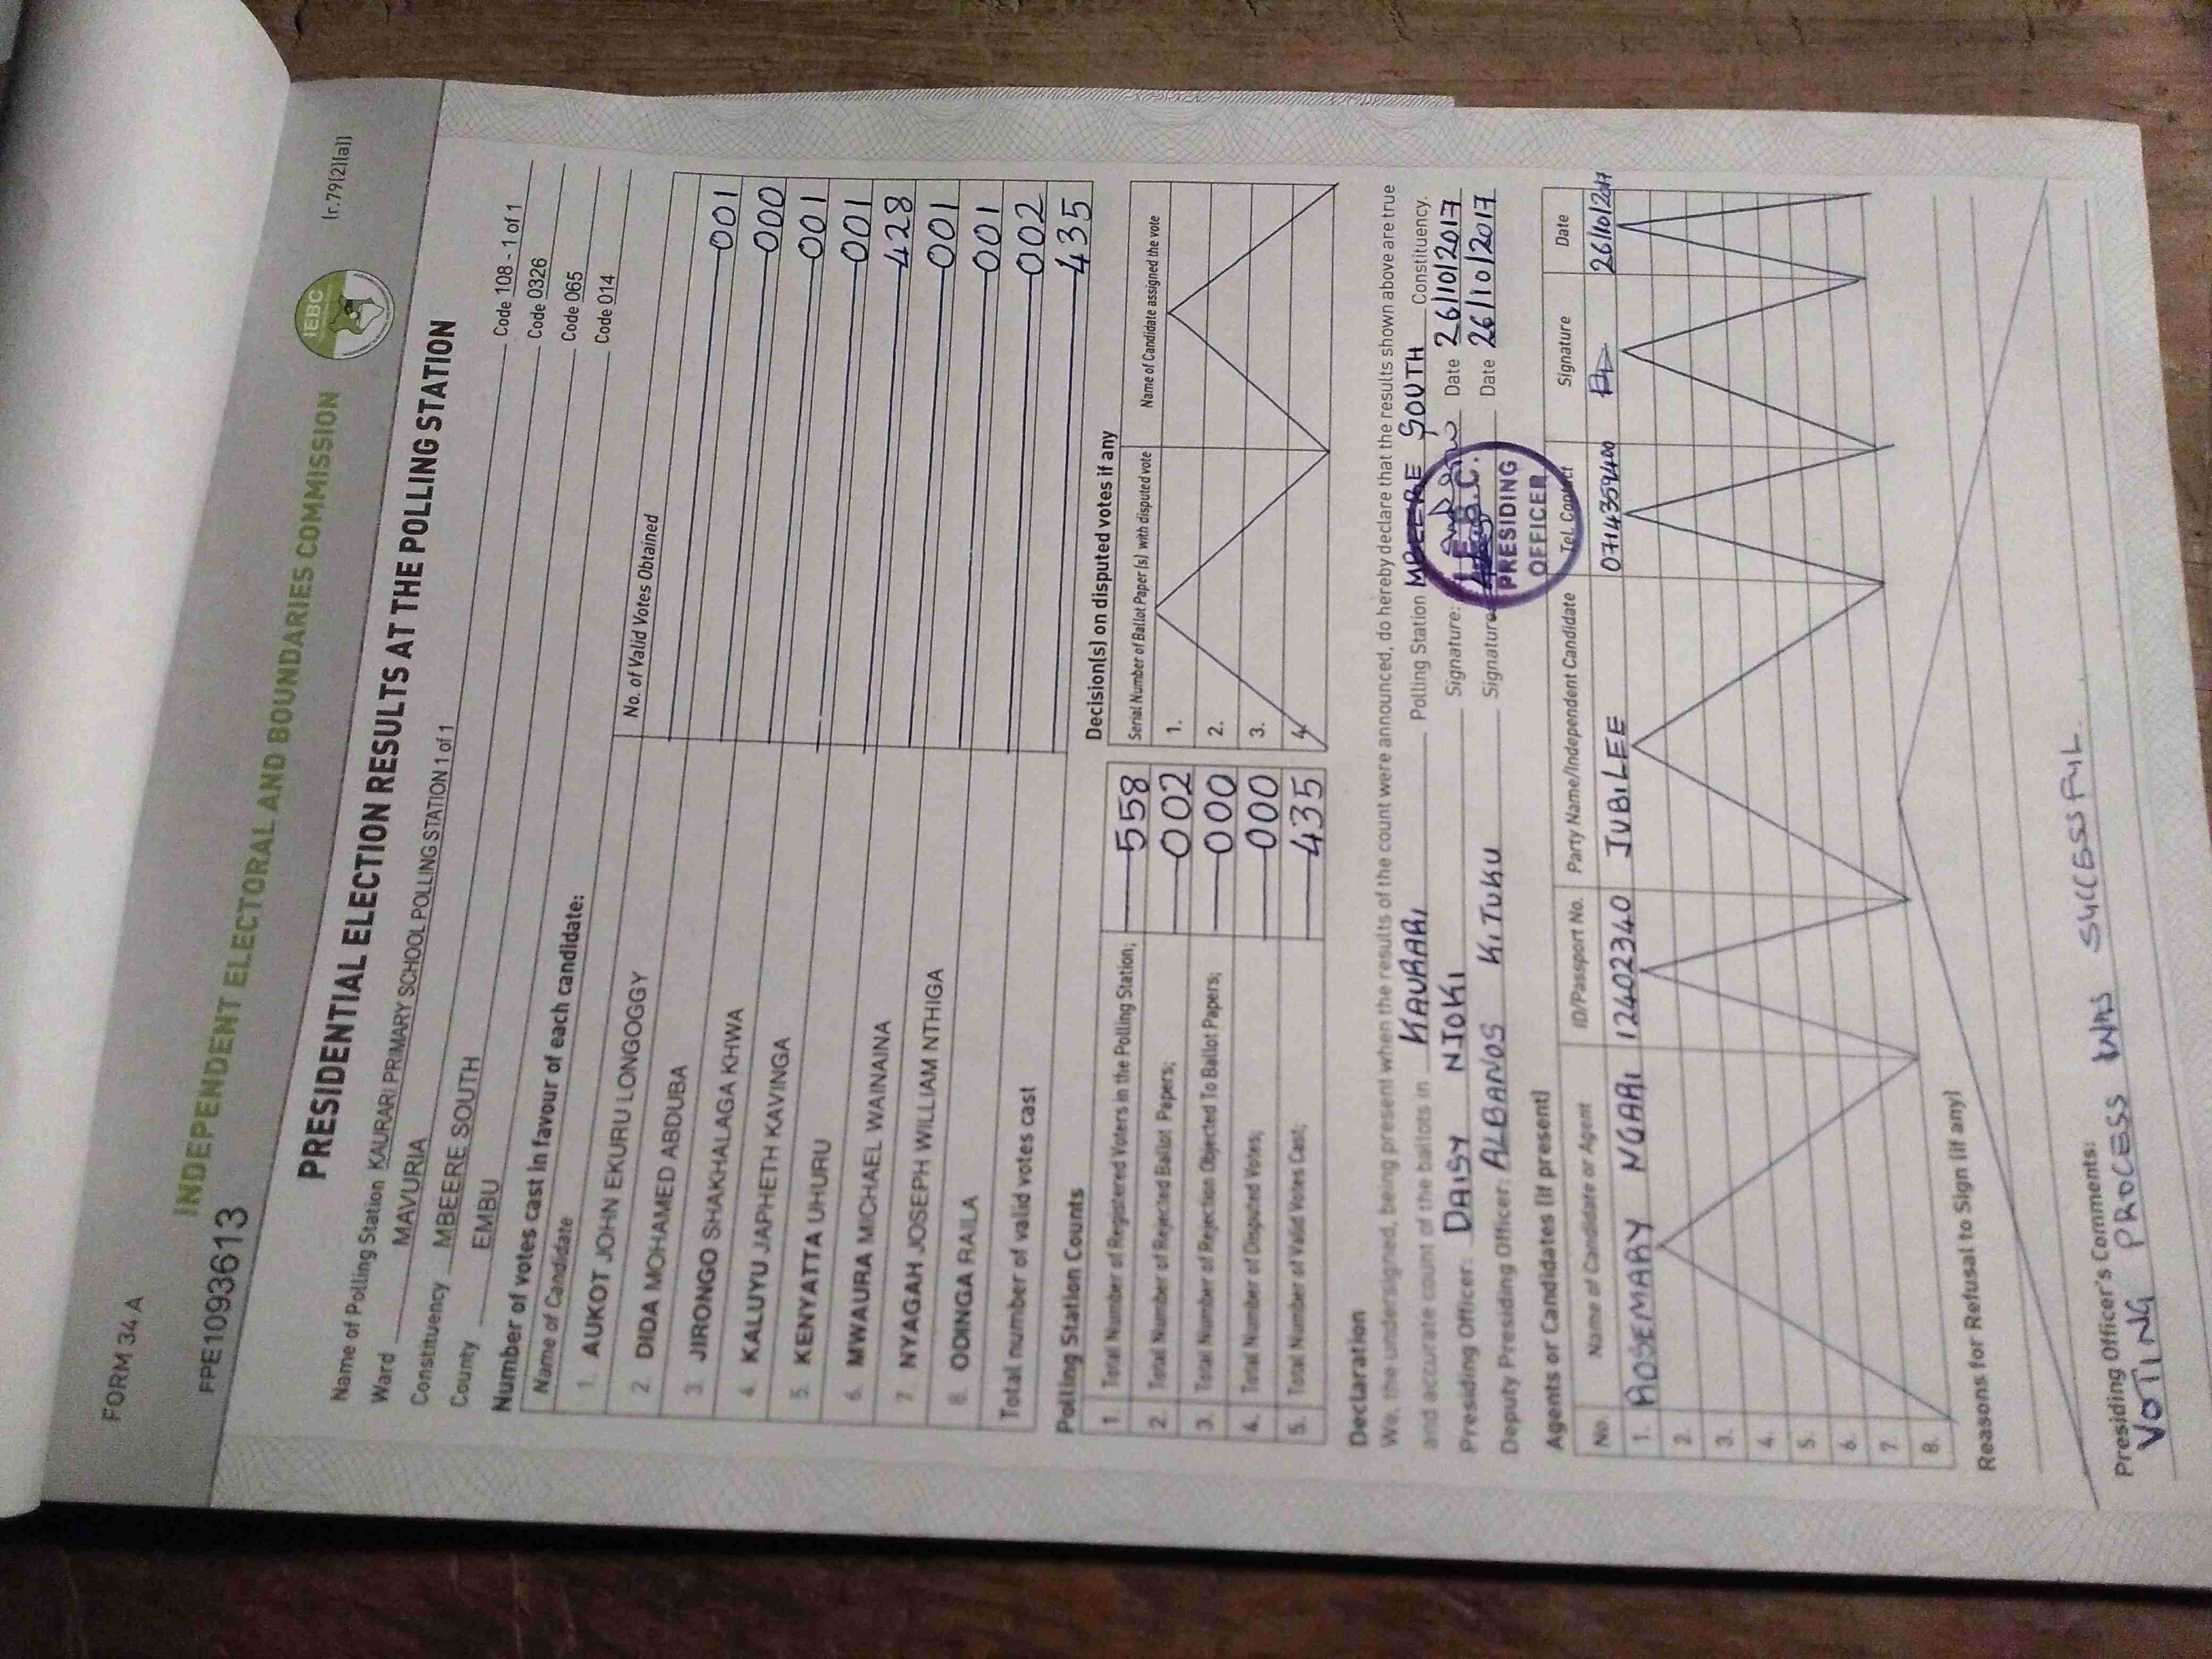 FORM 34 A
INDEPENDENT ELECTORAL AND BOUNDARIES COMMISSION
IEBC
(r.79(2)(a))
PPE1093613
PRESIDENTIAL ELECTION RESULTS AT THE POLLING STATION
Name of Polling Station KAURARI PRIMARY SCHOOL POLLING STATION 1 of 1 Code 108 - 1 of 1
Ward MAVURIA Code 0326
Constituency MBEERE SOUTH Code 065
County EMBU Code 014
Number of votes cast in favour of each candidate:
Name of Candidate No. of Valid Votes Obtained
1. AUKOT JOHN EKURU LONGOGGY 001
2. DIDA MOHAMED ABDUBA 000
3. JIRONGO SHAKHALAGA KHWA 001
4. KALUYU JAPHETH KAVINGA 001
5. KENYATTA UHURU 428
6. MWAURA MICHAEL WAINAINA 001
7. NYAGAH JOSEPH WILLIAM NTHIGA 001
8. ODINGA RAILA 002
Total number of valid votes cast 435
Polling Station Counts
1. Total Number of Registered Voters in the Polling Station; 558
2. Total Number of Rejected Ballot Papers; 002
3. Total Number of Rejection Objected To Ballot Papers; 000
4. Total Number of Disputed Votes; 000
5. Total Number of Valid Votes Cast; 435
Decision(s) on disputed votes if any
Serial Number of Ballot Paper (s) with disputed vote Name of Candidate assigned the vote
1.
2.
3.
4.
Declaration
We, the undersigned, being present when the results of the count were announced, do hereby declare that the results shown above are true
and accurrate count of the ballots in KAURARI Polling Station MBEERE SOUTH Constituency.
Presiding Officer: DAISY NJOKI Signature: Date 26/10/2017
Deputy Presiding Officer: ALBANOS KITUKU Signature: Date 26/10/2017
I.E.B.C.
PRESIDING
OFFICER
Agents or Candidates (if present)
No. Name of Candidate or Agent ID/Passport No. Party Name/Independent Candidate Tel. Contact Signature Date
1. ROSEMARY NGARI 12402340 JUBILEE 0714359400 26/10/2017
2.
3.
4.
5.
6.
7.
8.
Reasons for Refusal to Sign (if any)
Presiding Officer's Comments:
VOTING PROCESS WAS SUCCESSFUL.